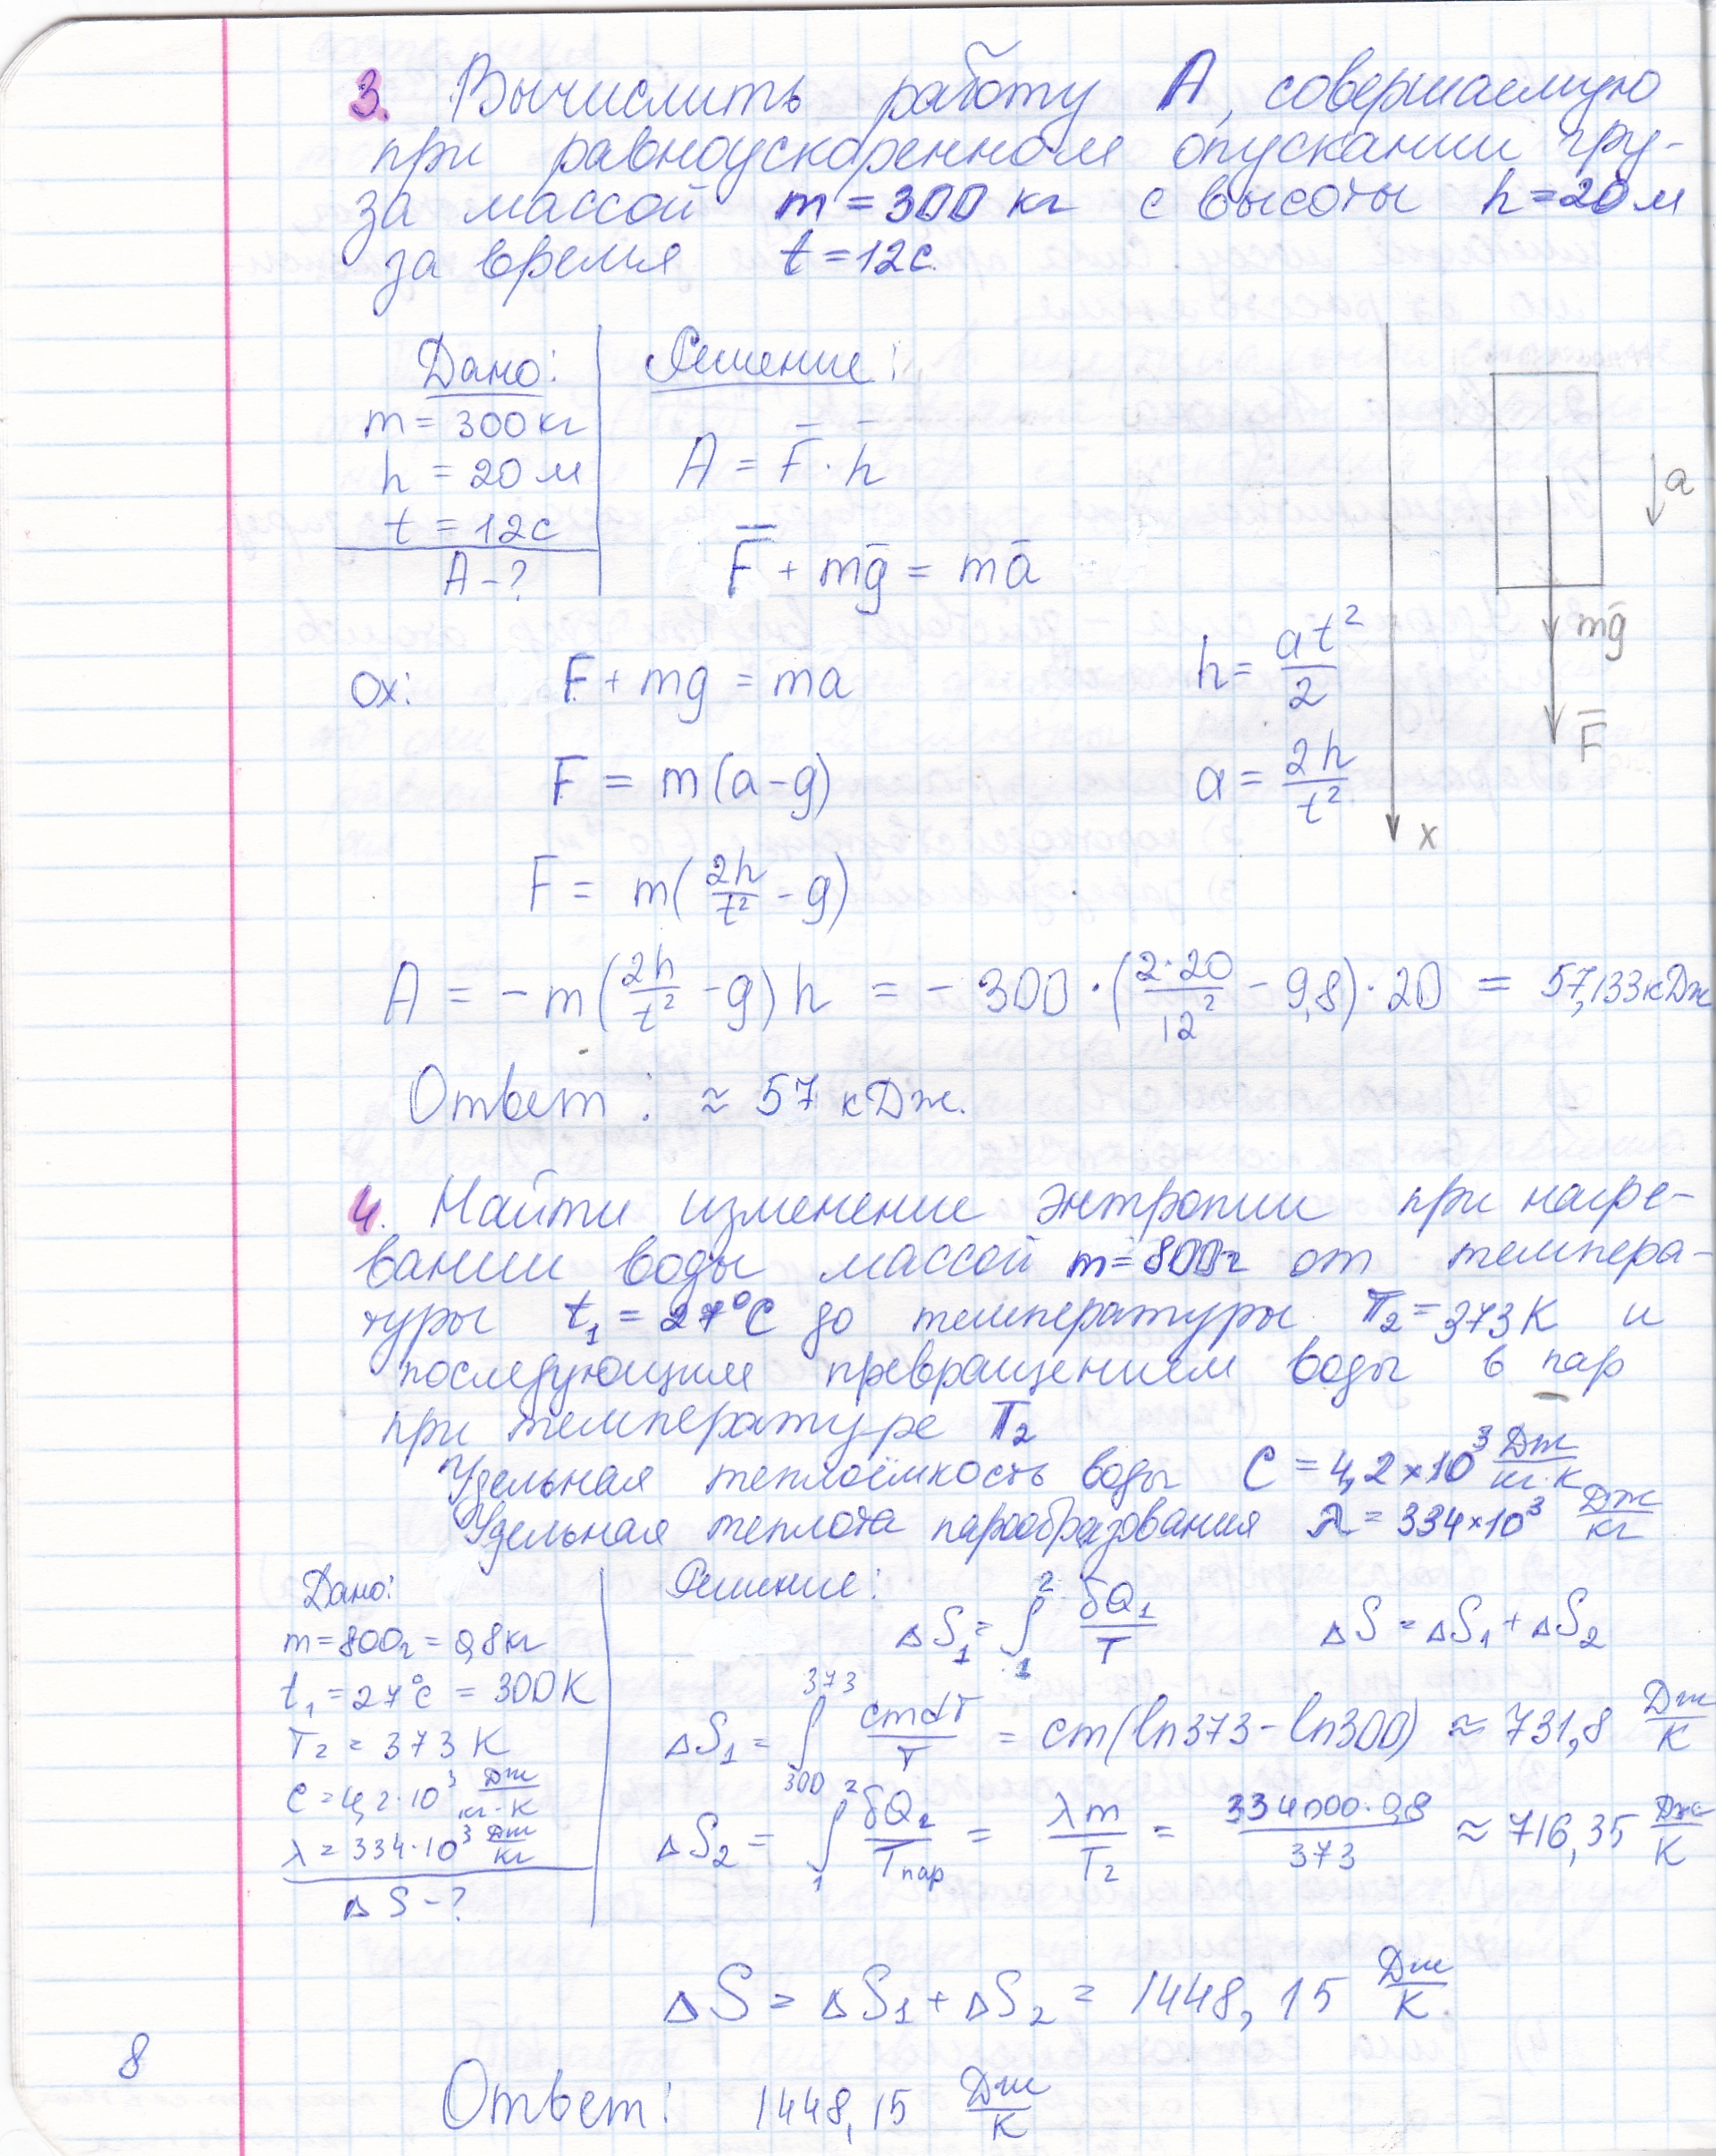 3. Вычислить работу A, совершаемую
при равноускоренном опускании гру-
за массой m = 300 кг с высоты h = 20 м
за время t = 12 с.
Дано:
m = 300 кг
h = 20 м
t = 12 с
A - ?
Решение:
A = F̄ · h̄
F̄ + mḡ = mā
Ox: F + mg = ma
F = m(a - g)
F = m(2h/t² - g)
h = at²/2
a = 2h/t²
a
mḡ
F̄
x
A = - m(2h/t² - g)h = - 300 · (2·20/12² - 9,8) · 20 = 57,133 кДж
Ответ: ≈ 57 кДж.
4. Найти изменение энтропии при нагре-
вании воды массой m = 800 г от темпера-
туры t₁ = 27°C до температуры T₂ = 373 K и
последующим превращением воды в пар
при температуре T₂
Удельная теплоёмкость воды C = 4,2×10³ Дж/кг·К
Удельная теплота парообразования λ = 334×10³ Дж/кг
Дано:
m = 800г = 0,8 кг
t₁ = 27°C = 300 K
T₂ = 373 K
C = 4,2·10³ Дж/кг·К
λ = 334·10³ Дж/кг
ΔS - ?
Решение:
ΔS₁ = ∫₁² δQ₁/T ΔS = ΔS₁ + ΔS₂
ΔS₁ = ∫₃₀₀³⁷³ cmdT/T = cm(ln373 - ln300) ≈ 731,8 Дж/К
ΔS₂ = ∫₁² δQ₂/Tпар = λm/T₂ = 334000·0,8/373 ≈ 716,35 Дж/К
ΔS = ΔS₁ + ΔS₂ = 1448,15 Дж/К
8
Ответ: 1448,15 Дж/К